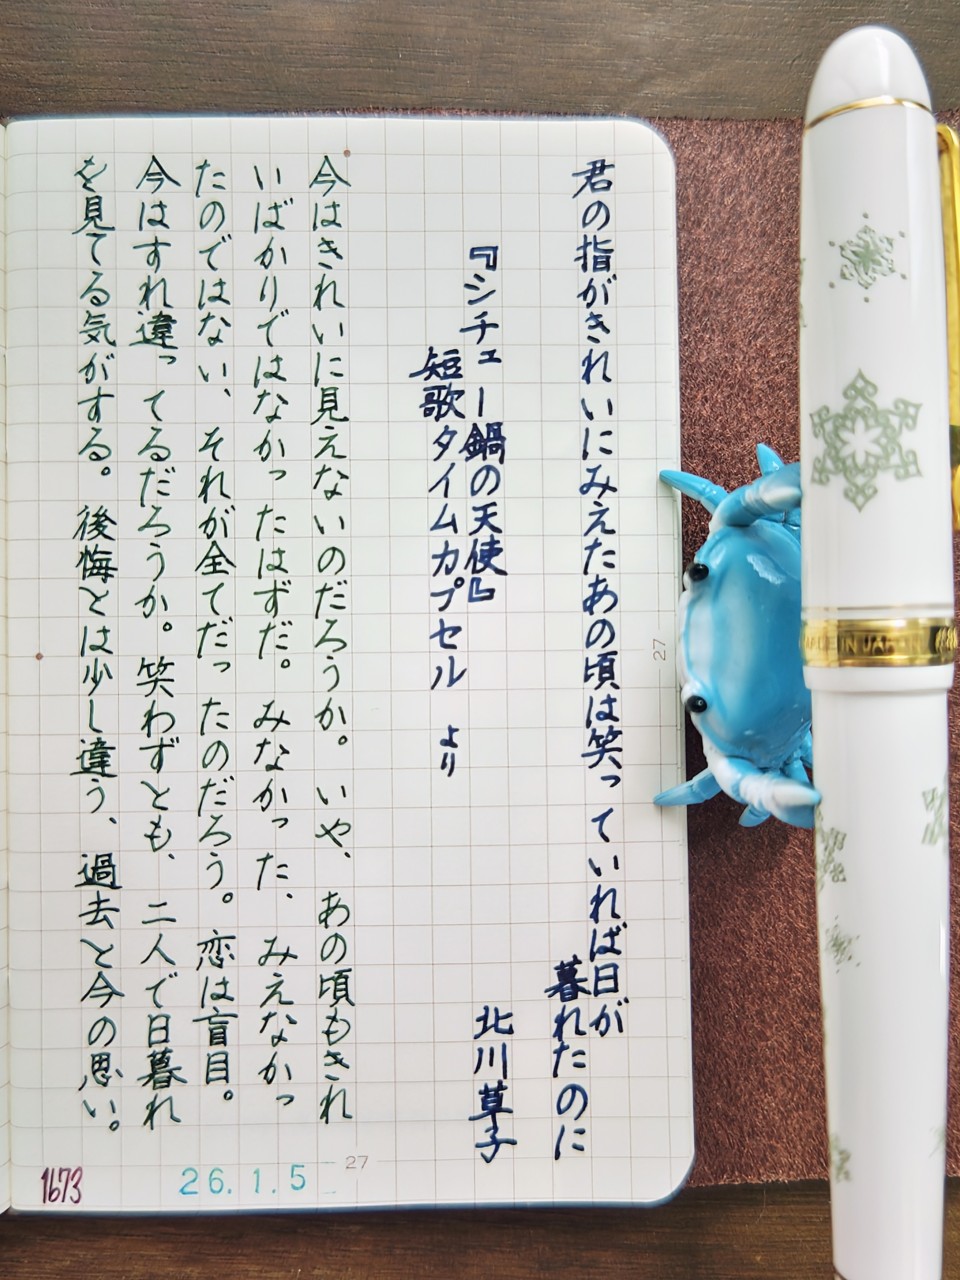 君の指がきれいにみえたあの頃は笑っていれば日が
暮れたのに
北川草子
『シチュー鍋の天使』
短歌タイムカプセル より
今はきれいに見えないのだろうか。いや、あの頃もきれ
いばかりではなかったはずだ。みなかった、みえなかっ
たのではない、それが全てだったのだろう。恋は盲目。
今はすれ違ってるだろうか。笑わずとも、二人で日暮れ
を見てる気がする。後悔とは少し違う、過去と今の思い。
27
27
26.1.5
1673
MADE IN JAPAN